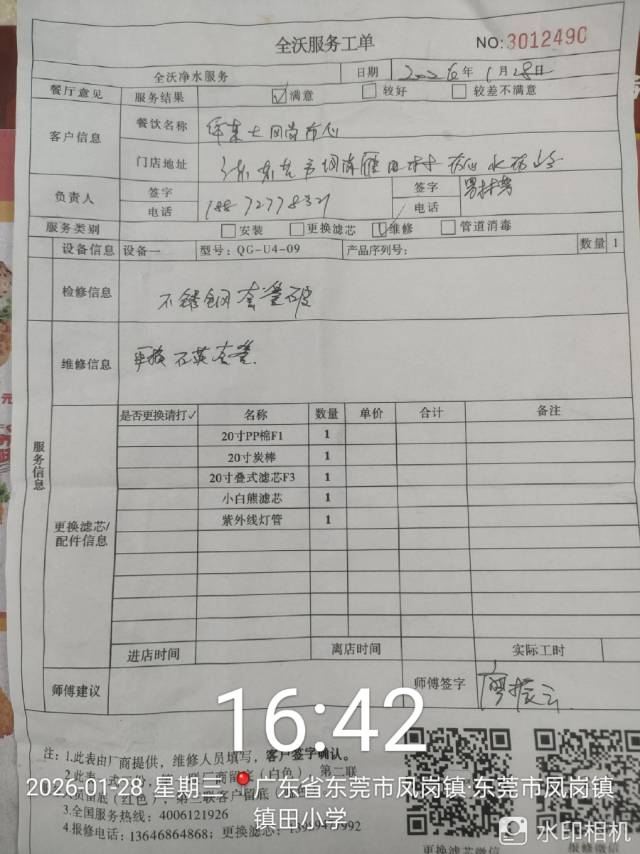 全沃服务工单
NO:3012490
全沃净水服务 日期 2026年1月28日
餐厅意见 服务结果 ☑满意 □较好 □较差不满意
客户信息 餐饮名称
门店地址
负责人 签字 签字
电话 电话
服务类别 □安装 □更换滤芯 ☑维修 □管道消毒
设备信息 设备一 型号:QG-U4-09 产品序列号: 数量 1
检修信息 不锈钢套管破
维修信息 更换石英套管.
服务信息
是否更换请打✓ 名称 数量 单价 合计 备注
20寸PP棉F1 1
20寸炭棒 1
20寸叠式滤芯F3 1
小白熊滤芯 1
紫外线灯管 1
更换滤芯/
配件信息
进店时间 离店时间 实际工时
师傅建议 师傅签字
16:42
注:1.此表由厂商提供,维修人员填写,客户签字确认。
2026-01-28 星期三 广东省东莞市凤岗镇·东莞市凤岗镇
镇田小学
3.全国服务热线:4006121926
4.报修电话:13646864868;更换滤芯:
更换滤芯微信 报修微信
水印相机